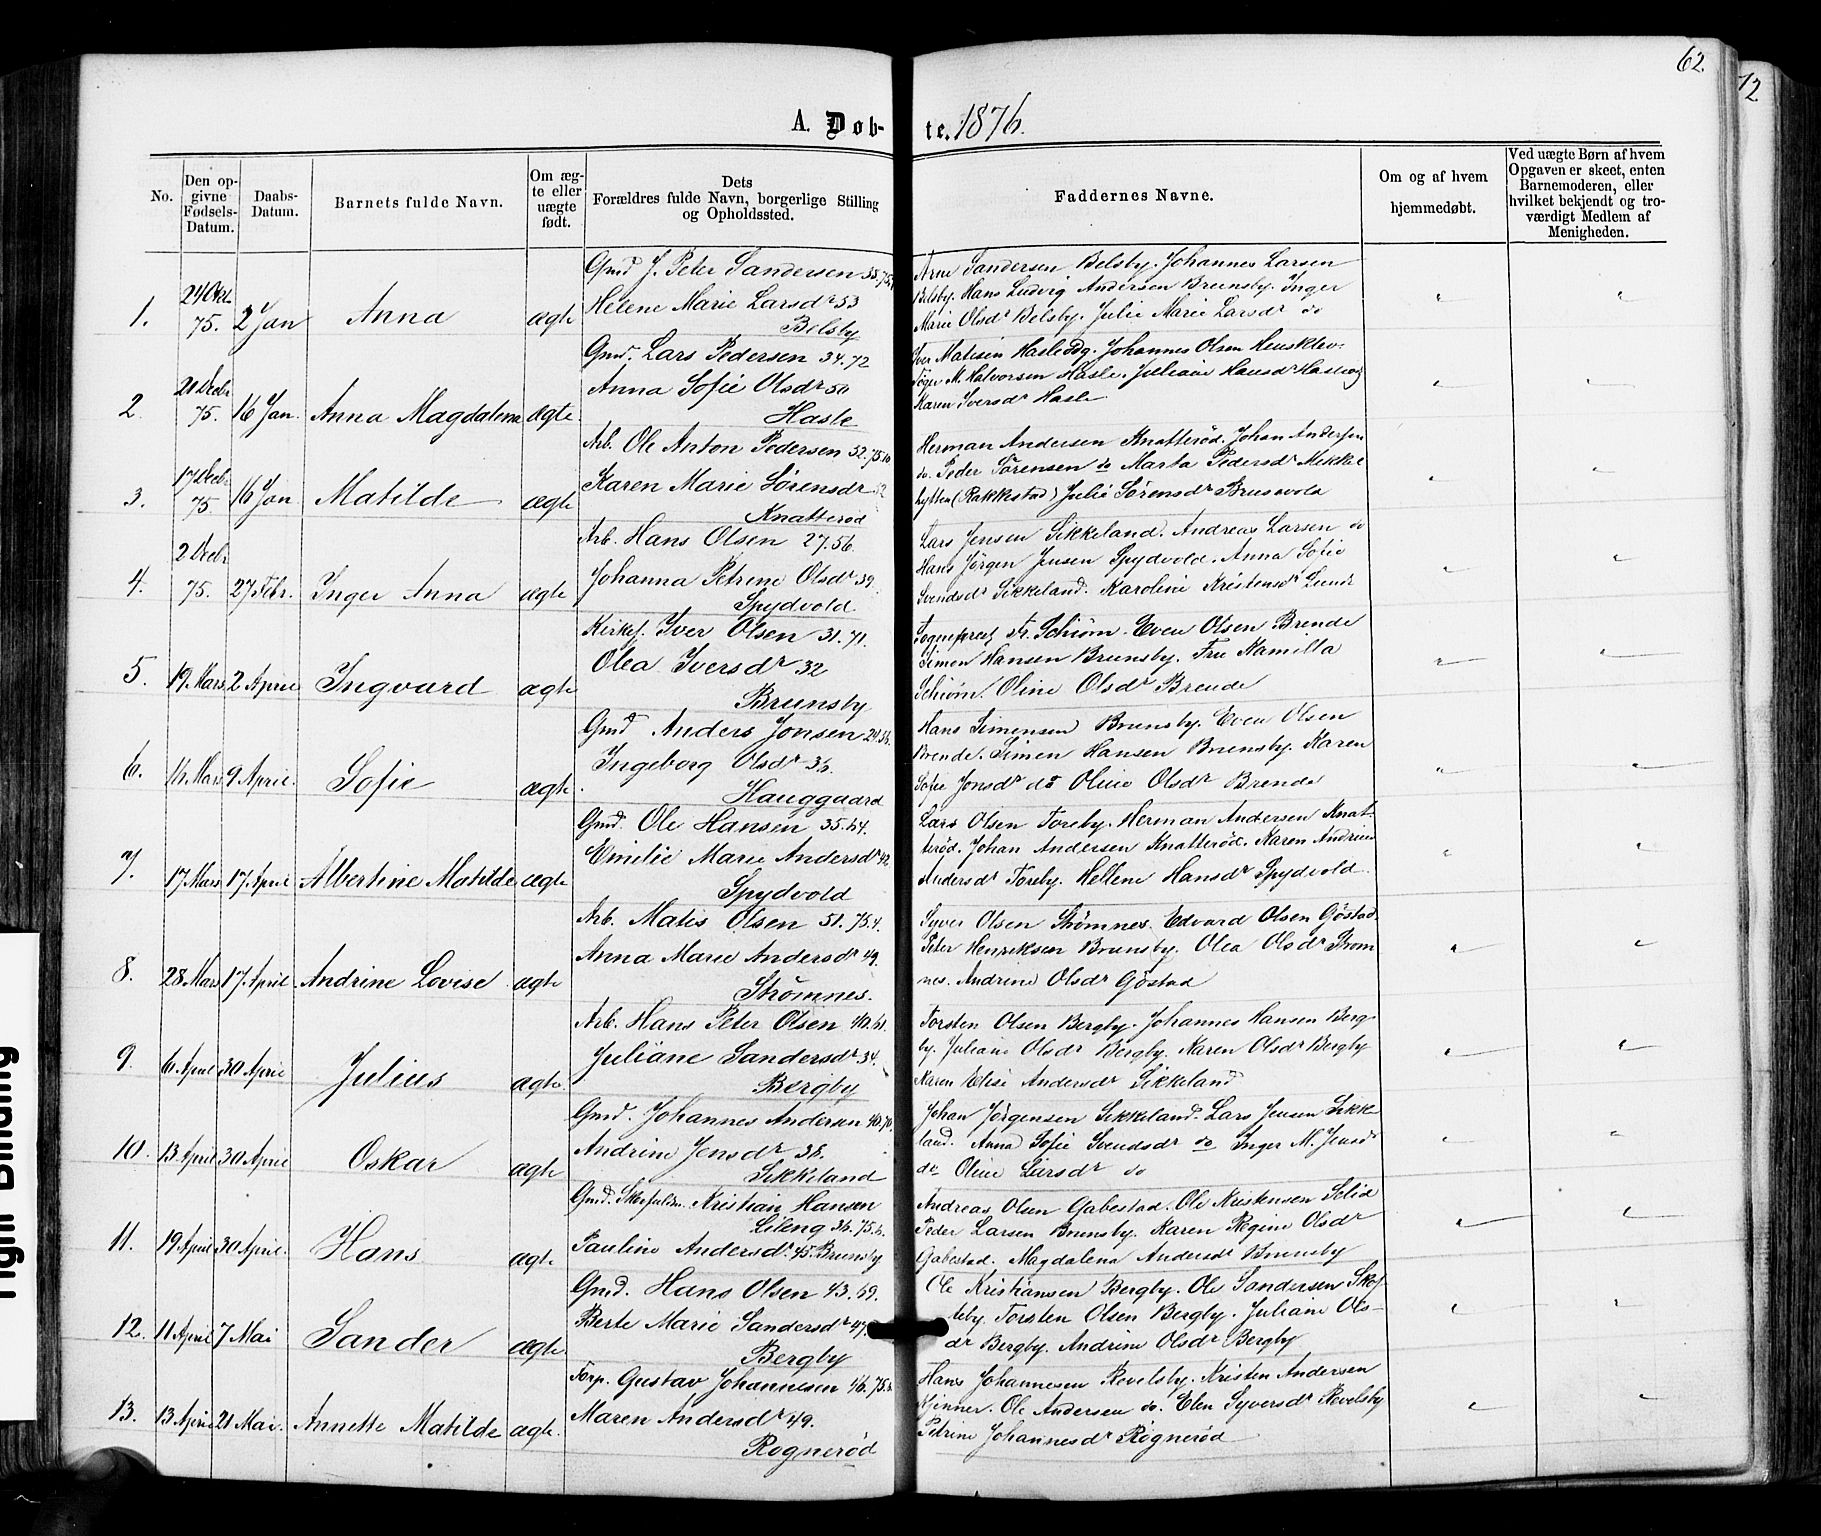 62
72
A. Døb-
te. 1876.
No.
Den op-
givne
Fødsels-
Datum.
Daabs-
Datum.
Barnets fulde Navn.
Om æg-
te eller
uægte
født.
Dets
Forældres fulde Navn, borgerlige Stilling
og Opholdssted.
Faddernes Navne.
Om og af hvem
hjemmedøbt.
Ved uægte Børn af hvem
Opgaven er skeet, enten
Barnemoderen, eller
hvilket bekjendt og tro-
værdigt Medlem af
Menigheden.
1. 24 Okt. 75. 2 Jan Anna ægte
Gmd J. Peter Sandersen
Helene Marie Larsdr 53
Belsby
Arne Sandersen Belsby. Johannes Larsen
Belsby. Hans Ludvig Andersen Brunsby. Inger
Marie Olsdr Belsby. Julie Marie Larsdr do
2. 21 Decbr 75. 16 Jan. Anna Magdalena ægte
Gmd. Lars Pedersen 34. 72
Anna Sofie Olsdr 50
Hasle
Iver Matisen Hasle. Johannes Olsen
M. Halvorsen Hasle. Juliane Hansdr
Karen Iversdr Hasle
3. 17 Decbr 75. 16 Jan Matilde ægte
Arb. Ole Anton Pedersen 52. 75.
Karen Marie Sörensdr 52
Knatteröd
Herman Andersen Knatteröd. Johan Andersen
do. Peder Sörensen do Marta Pedersdr Mikkel
hytten (Rakkestad) Julie Sörensdr Brusevold
4. 2 Decbr 75. 27 Febr. Inger Anna ægte
Arb. Hans Olsen 27. 56.
Johanna Petrine Olsdr 39.
Spydvold.
Lars Jensen Sikkeland. Andreas Larsen do
Hans Jörgen Jensen Spydvold. Anna Sofie
Svendsdr Sikkeland. Karoline Kristensdr Lund
5. 19 Mars 2 April Ingvard ægte
Kirkes. Iver Olsen 31. 71.
Olea Iversdr 32
Brunsby
Sognepræst Fr. Schiöm. Even Olsen Brende
Simen Hansen Brunsby. Fru Kamilla
Schiöm. Oline Olsdr Brende
6. 16 Mars 9 April. Sofie ægte
Gmd Anders Jonsen
Ingeborg Olsdr 36.
Hauggaard
Hans Simensen Brunsby. Even Olsen
Brende. Simen Hansen Brunsby. Karen
Sofie Jonsdr do Oline Olsdr Brende
7. 17 Mars 17 April Albertine Matilde ægte
Gmd. Ole Hansen 35. 64.
Emilie Marie Andersdr 42
Spydvold
Lars Olsen Toreby. Herman Andersen Knat-
teröd. Johan Andersen Knatteröd. Karen Andrine
Andersdr Toreby. Hellene Hansdr Spydvold.
8. 28 Mars 17 April. Andrine Lovise ægte
Arb. Matis Olsen 51. 75.4.
Anna Marie Andersdr 49.
Strømnes.
Syver Olsen Strømnes. Edvard Olsen Göstad.
Peter Henriksen Brunsby. Olea Olsdr Strøm
nes. Andrine Olsdr Göstad
9. 6 April 30 April Julius ægte
Arb. Hans Peter Olsen 40. 61.
Juliane Sandersdr 34.
Bergby
Torsten Olsen Bergby. Johannes Hansen Berg-
by. Juliane Olsdr Bergby. Karen Olsdr Bergby
Karen Elise Andersdr Sikkeland
10. 13 April 30 April Oskar ægte
Gmd. Johannes Andersen 40. 70.
Andrine Jensdr 38.
Sikkeland
Johan Jörgensen Sikkeland. Lars Jensen Sikke
land. Anna Sofie Svendsdr do Inger M. Jensdr
do Oline Larsdr do
11. 19 April 30 April. Hans ægte
Gmd. Kristian Hansen
Lieng 36. 75.
Pauline Andersdr. 45. Brunsby
Andreas Olsen Gabestad. Ole Kristensen Selid
Peder Larsen Brunsby. Karen Regine Olsdr
Gabestad. Magdalena Andersdr Brunsby
12. 11 April 7 Mai Sander ægte
Gmd. Hans Olsen 43. 69.
Berte Marie Sandersdr 47.
Bergby
Ole Kristiansen Bergby. Ole Sandersen
Torsten Olsen Bergby. Juliane Ols-
dr Bergby. Andrine Olsdr Bergby
13. 13 April 21 Mai. Annette Matilde ægte.
Torp. Gustav Johannesen 46. 75.
Maren Andersdr 49.
Rognerød
Hans Johannesen Revelsby. Kristen Andersen
Ole Andersen do. Elen Syversdr Revelsby
Petrine Johannesdr Rognerød
Tight Binding